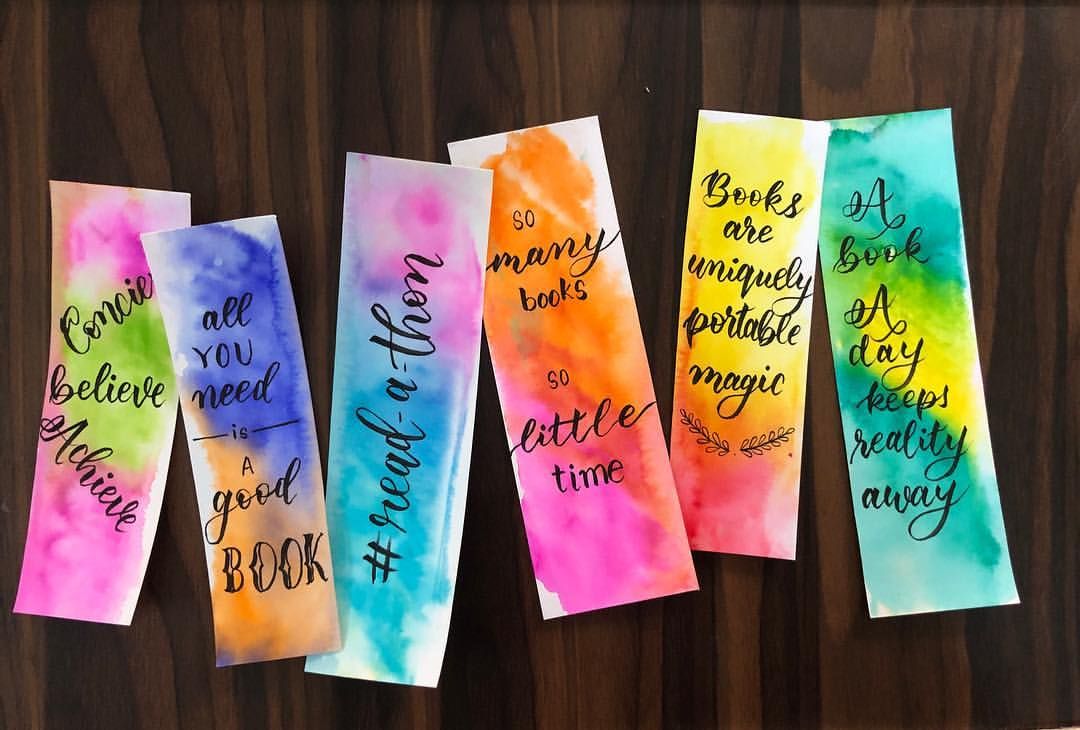 Concie
believe
Achieve
all
YOU
need
is
A
good
BOOK
#read-a-thon
so
many
books
so
little
time
Books
are
uniquely
portable
magic
A
book
A
day
keeps
reality
away